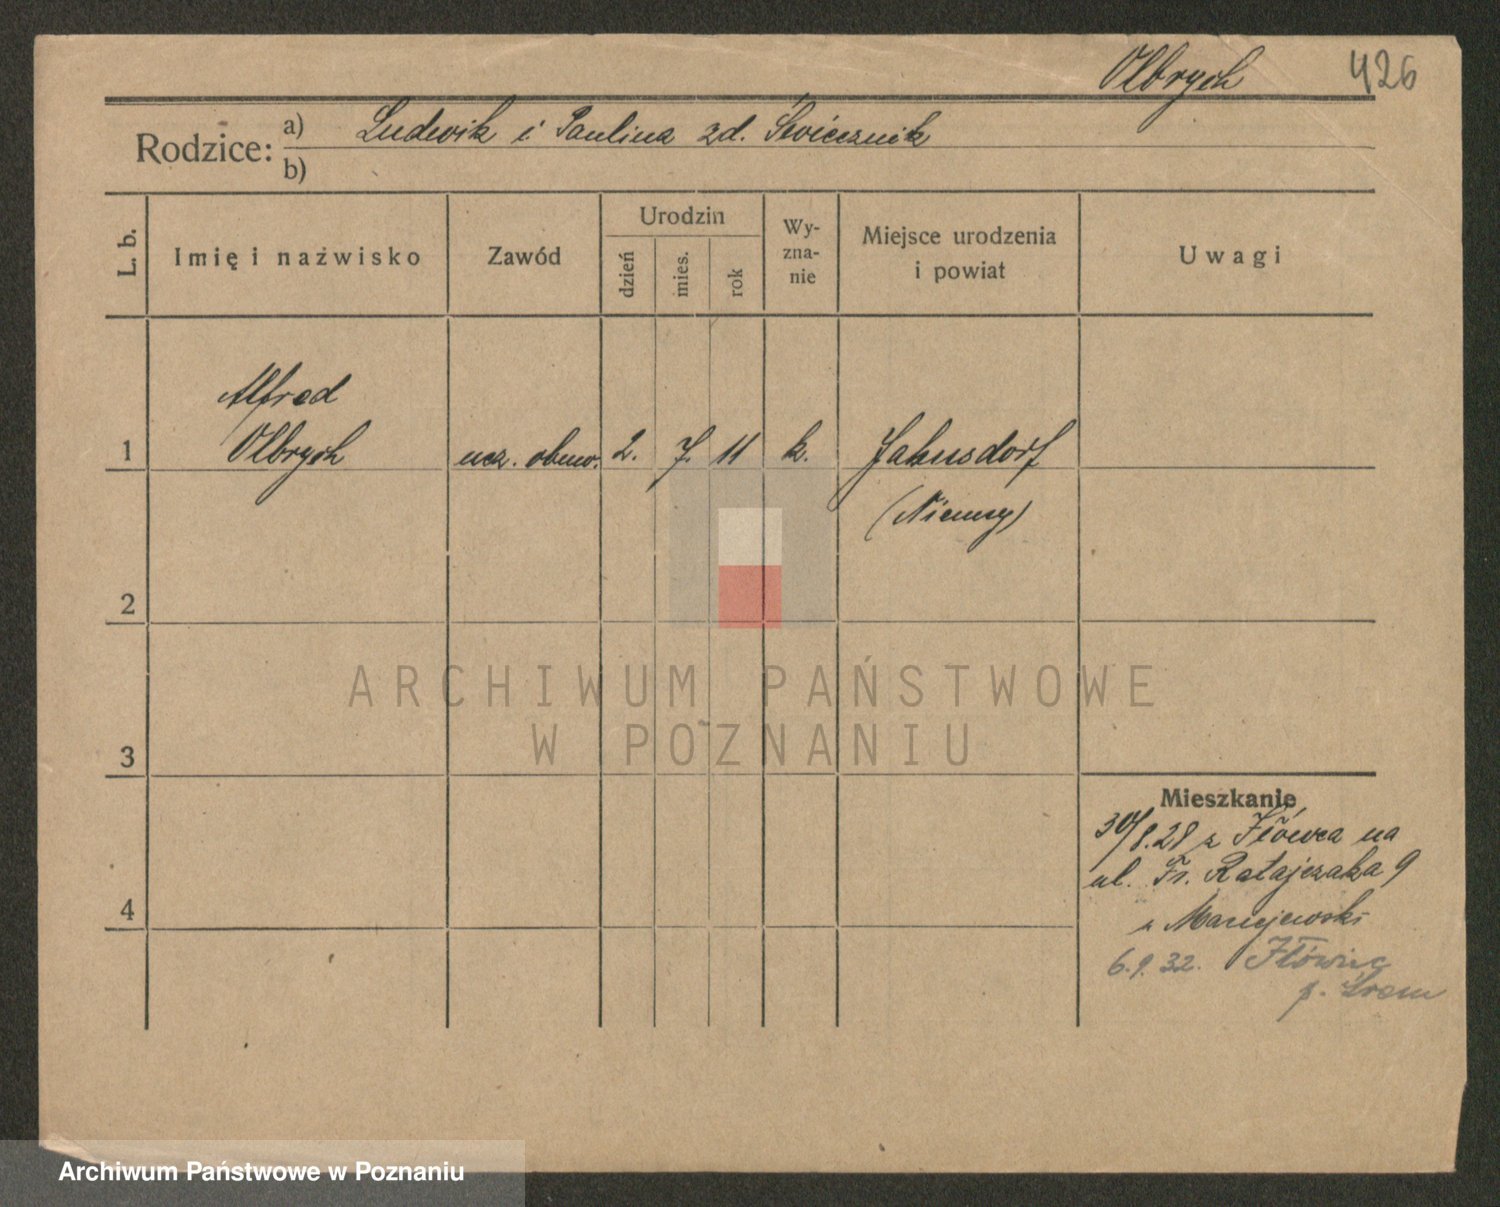 Olbrych 426
Rodzice: a) Ludwik i Paulina zd. Świecznik
b)
L. b. Imię i nazwisko Zawód Urodzin dzień mies. rok Wy-zna-nie Miejsce urodzenia i powiat Uwagi
Alfred
1 Olbrych ucz. obuw. 2. 7. 11 k. Jahnsdorf
(Niemcy)
2
ARCHIWUM PAŃSTWOWE
W POZNANIU
3
Mieszkanie
30/8.28 z Iłówca na
ul. Fr. Ratajczaka 9
4
z Maciejewski
6.9.32. Iłówiec
p. Śrem
Archiwum Państwowe w Poznaniu